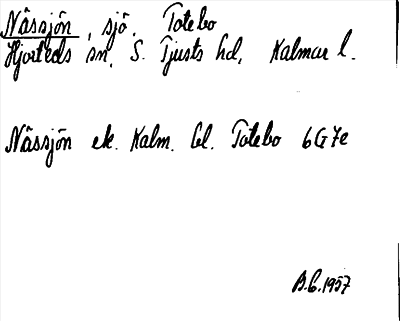 Nässjön, sjö. Totebo
Hjorteds sn, S. Tjusts hd, Kalmar l.
Nässjön ek. Kalm. bl. Totebo 6G7e
B.G.1957